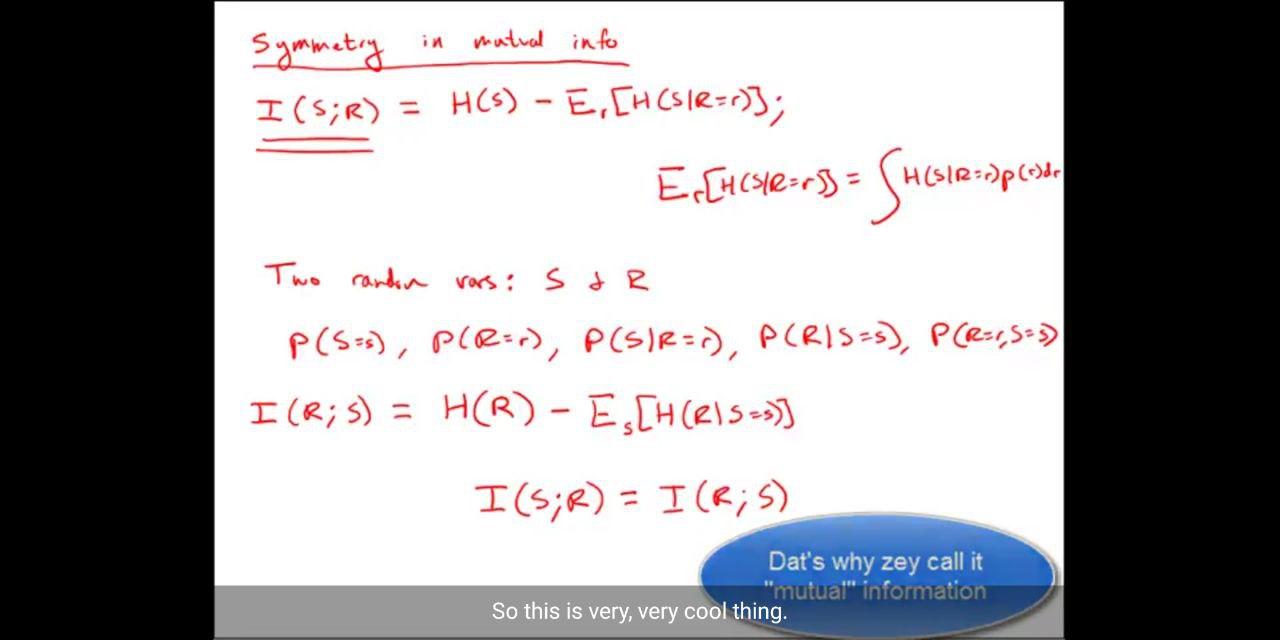 Symmetry in mutual info
I(S;R) = H(S) - E_r[H(S|R=r)];
E_r[H(S|R=r)] = ∫H(S|R=r)p(r)dr
Two random vars: S & R
P(S=s), P(R=r), P(S|R=r), P(R|S=s), P(R=r,S=s)
I(R;S) = H(R) - E_s[H(R|S=s)]
I(S;R) = I(R;S)
Dat's why zey call it
"mutual" information
So this is very, very cool thing.